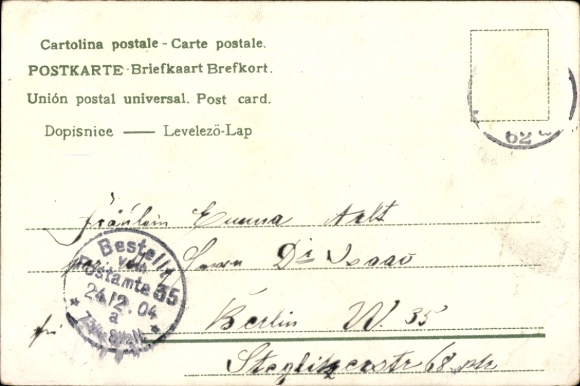 Cartolina postale - Carte postale.
POSTKARTE - Briefkaart Brefkort.
Unión postal universal. Post card.
Dopisnice — Levelező-Lap
62
Fräulein Emma Aelt
Herrn Dr Isaac
Berlin W. 35
Steglitzerstr 68.
Bestellt
vom
Postamte 35
24/12. 04